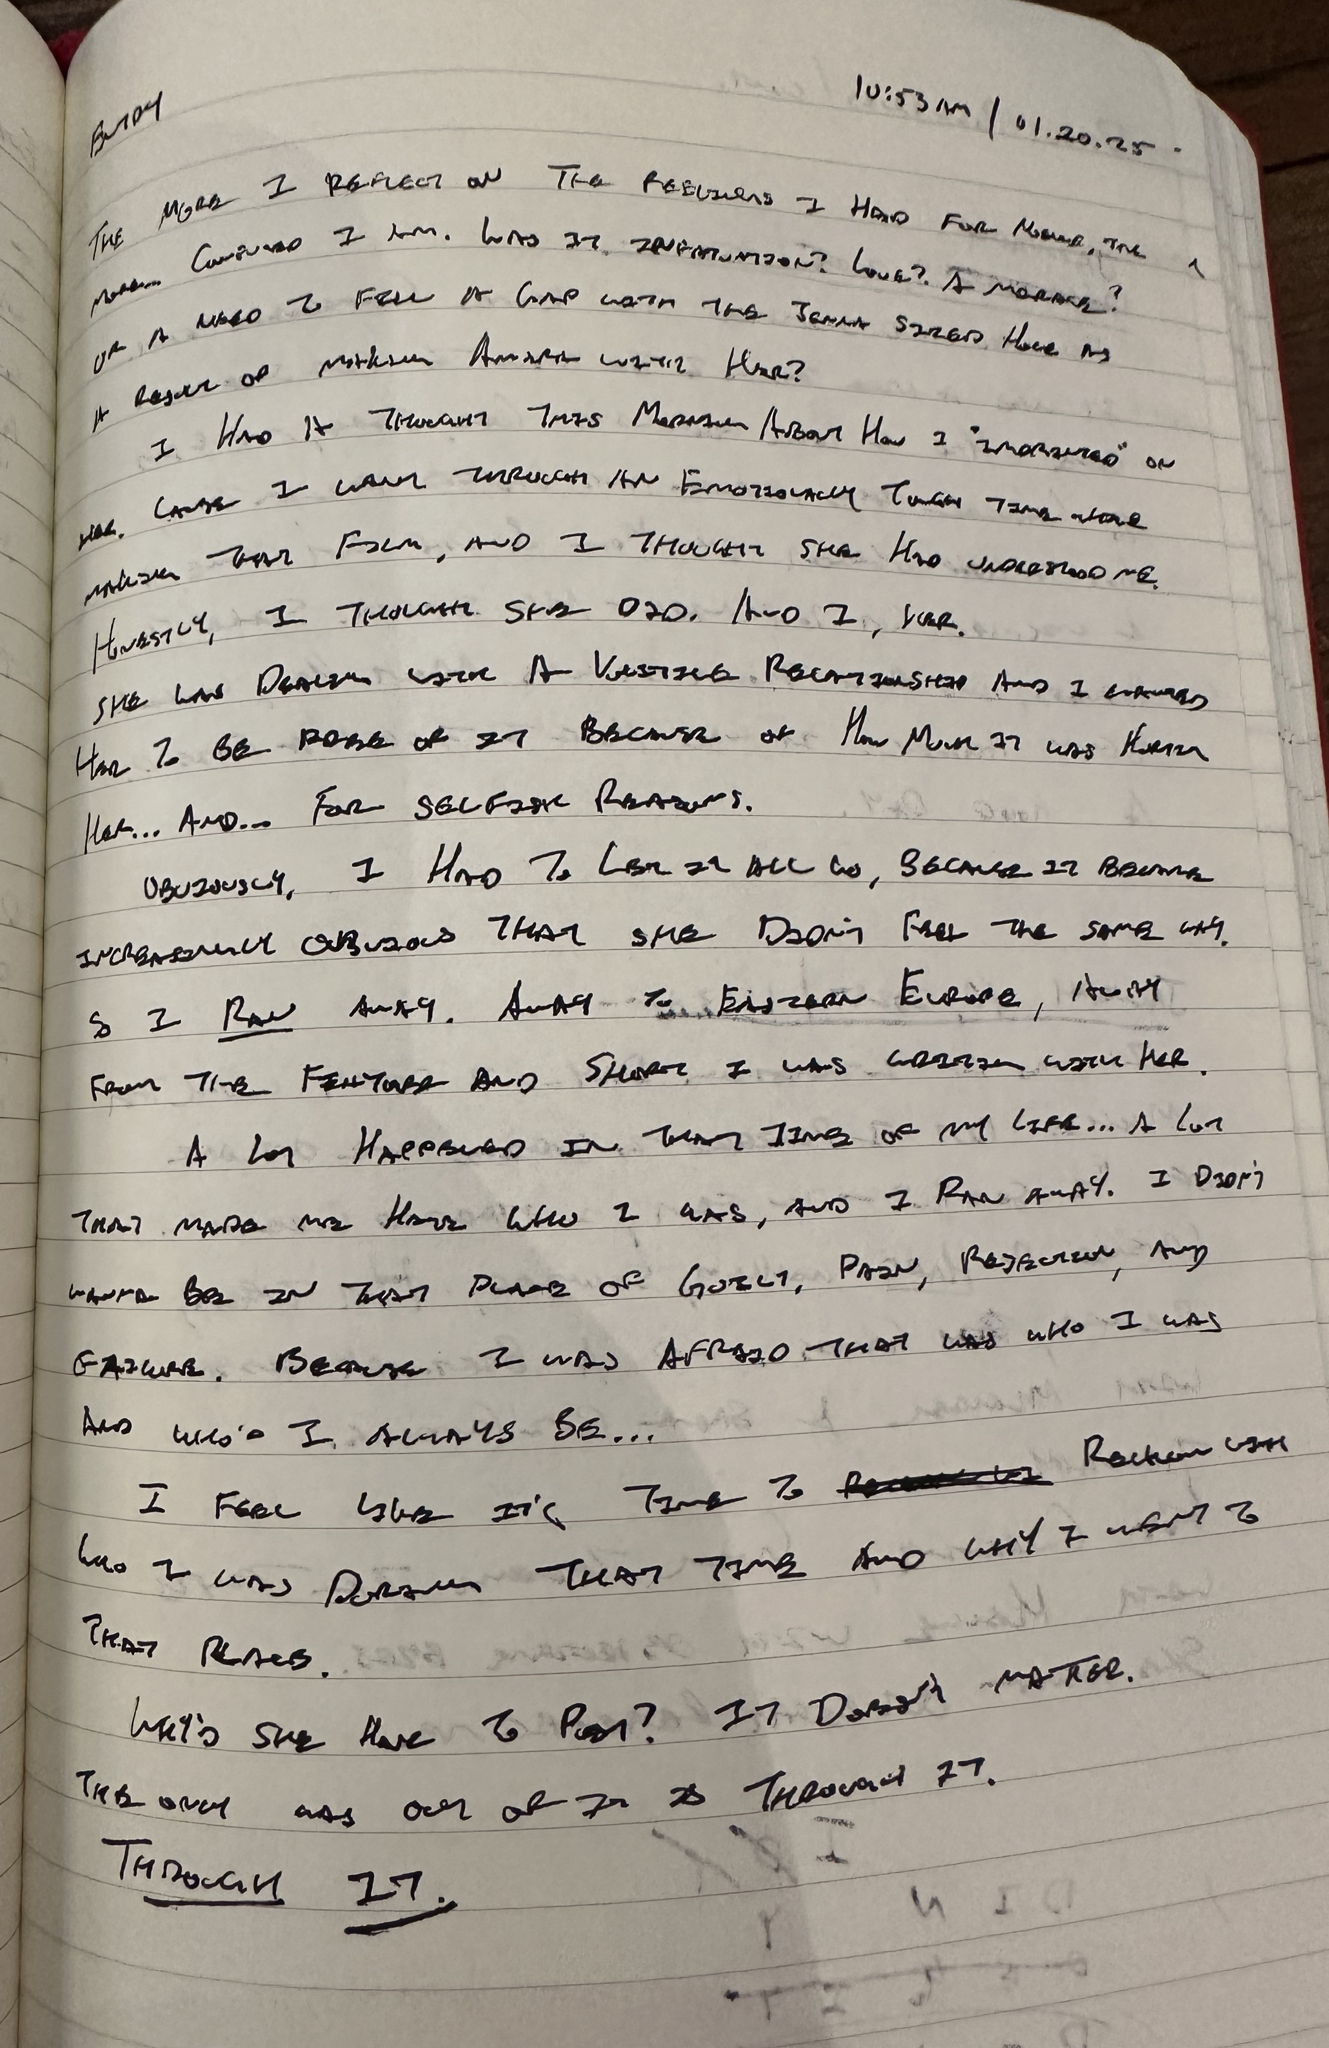 ENTRY
10:53AM / 01.20.25
THE MORE I REFLECT ON THE FEELINGS I HAD FOR, THE
MORE... CONFUSED I AM. WAS IT INFATUATION? LOVE? A MIRAGE?
OR A NEED TO FILL A GAP WITH THE JENNA SIZED HOLE AS
A RESULT OF MAKING WITH HER?
I HAD A THOUGHT THIS MORNING ABOUT HOW I "IMPRINTED" ON
HER. CAUSE I WENT THROUGH AN EMOTIONALLY TOUGH TIME
MAKING THAT FILM, AND I THOUGHT SHE HAD UNDERSTOOD ME.
HONESTLY, I THOUGHT SHE DID. AND I, HER.
SHE WAS DEALING WITH A RELATIONSHIP AND I WANTED
HER TO BE FREE OF IT BECAUSE OF HOW MUCH IT WAS HURTING
HER... AND... FOR SELFISH REASONS.
OBVIOUSLY, I HAD TO LET IT ALL GO, BECAUSE IT BECAME
INCREASINGLY OBVIOUS THAT SHE DIDN'T FEEL THE SAME WAY.
SO I RAN AWAY. AWAY TO EASTERN EUROPE, AWAY
FROM THE FEATURE AND SHORT I WAS WRITING WITH HER.
A LOT HAPPENED IN THAT TIME OF MY LIFE... A LOT
THAT MADE ME HATE WHO I WAS, AND I RAN AWAY. I DIDN'T
WANNA BE IN THAT PLACE OF GUILT, PAIN, REJECTION, AND
FAILURE. BECAUSE I WAS AFRAID THAT WAS WHO I WAS
AND WHO'D I ALWAYS BE...
I FEEL LIKE IT'S TIME TO RECKON WITH
WHO I WAS DURING THAT TIME AND WHY I WENT TO
THAT PLACE.
WHY'D SHE HAVE TO POST? IT DOESN'T MATTER.
THE ONLY WAS OUT OF IT IS THROUGH IT.
THROUGH IT.